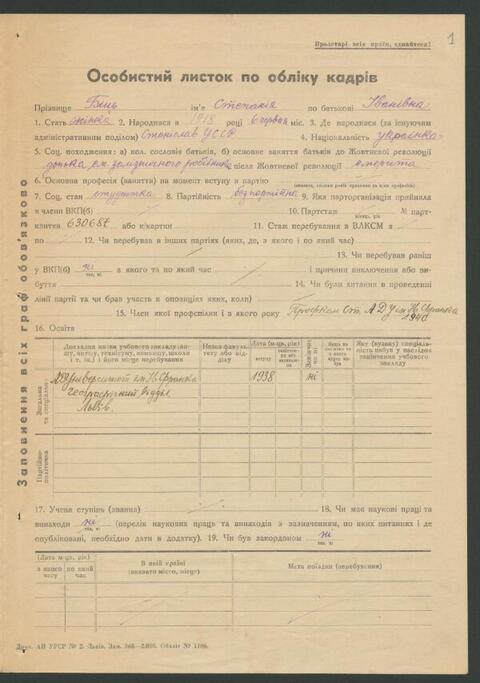 1
Пролетарі всіх країн, єднайтеся!
Особистий листок по обліку кадрів
Прізвище Биць ім'я Стефанія по батькові Іванівна
1. Стать жінка 2. Народився в 1918 році 6 червня міс. 3. Де народився (за існуючим
адміністративним поділом) Станіслав УССР 4. Національність українка
5. Соц. походження: а) кол. сословіє батьків, б) основне заняття батьків до Жовтневої революції
донька ем. залізничного робітника після Жовтневої революції емерита
6. Основна професія (заняття) на момент вступу в партію
7. Соц. стан студентка 8. Партійність безпартійна 9. Яка парторганізація прийняла
в члени ВКП(б) 10. Партстаж № парт-
місяць, рік
квитка 630687 або к/картки 11. Стаж перебування в ВЛКСМ з
по 12. Чи перебував в інших партіях (яких, де, з якого і по який час)
13. Чи перебував раніш
у ВКП(б) ні з якого та по який час і причини виключення або ви-
так, ні
буття 14. Чи були хитання в проведенні
лінії партії та чи брав участь в опозиціях яких, коли)
15. Член якої профспілки і з якого року Профком Ст. ЛДУ ім. Ів. Франка
1940
16. Освіта
Докладна назва учбового закладу
Дата (м-ць, рік)
вступу
Яку (вузьку) спеціаль-
ність набув у наслідок
закінчення учбового
закладу
Загальна
та спеціальна
Університет ім. Ів. Франка 1938 ні
Географічний відділ
Львів.
Партійно-
політична
17. Учена ступінь (звання) 18. Чи має наукові праці та
винаходи ні (перелік наукових праць та винаходів з зазначенням, по яких питаннях і де
так, ні
опубліковані, необхідно дати в додатку). 19. Чи був закордоном ні
так, ні
(Дата м-ць, рік)
з якого
часу
по який
час
В якій країні
(вказати місто, місце)
Мета поїздки (перебування)
Друк. АН УРСР № 2. Львів. Зам. 368—2.000. Обліт № 1186.
Заповнення всіх граф обов'язково